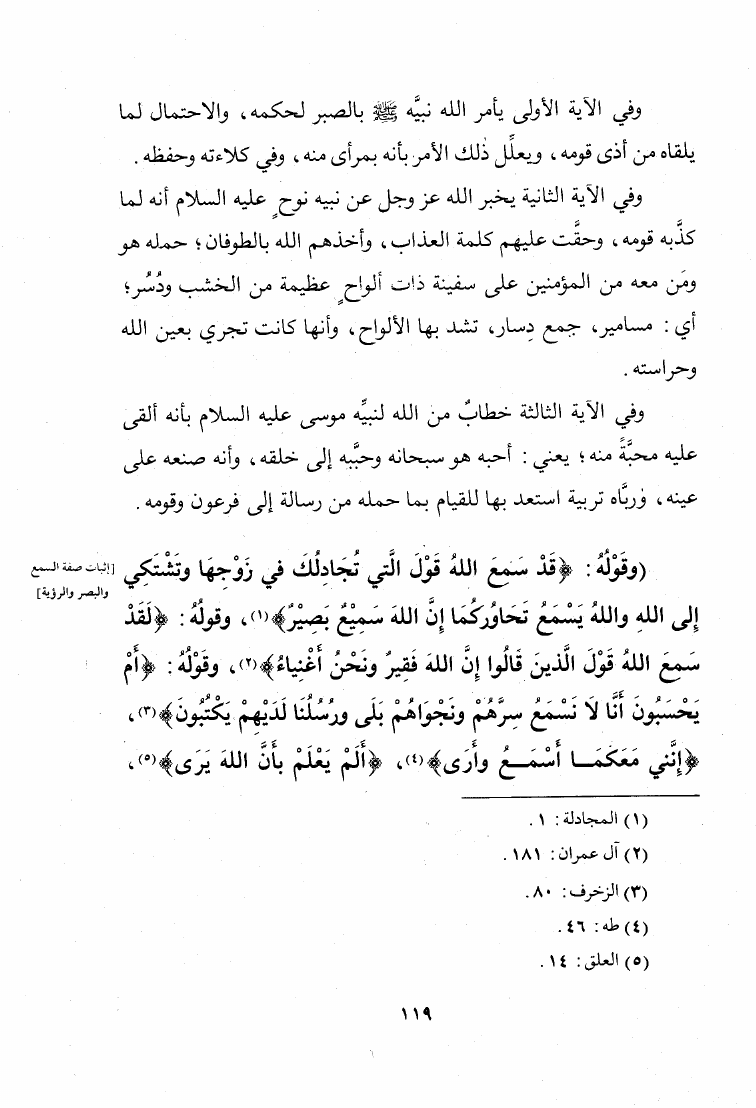 وفي الآية الأولى يأمر الله نبيَّه ﷺ بالصبر لحكمه، والاحتمال لما
يلقاه من أذى قومه، ويعلِّل ذلك الأمر بأنه بمرأى منه، وفي كلاءته وحفظه.
وفي الآية الثانية يخبر الله عز وجل عن نبيه نوحٍ عليه السلام أنه لما
كذَّبه قومه، وحقَّت عليهم كلمة العذاب، وأخذهم الله بالطوفان؛ حمله هو
ومَن معه من المؤمنين على سفينة ذات ألواحٍ عظيمة من الخشب ودُسُر؛
أي: مسامير، جمع دِسار، تشد بها الألواح، وأنها كانت تجري بعين الله
وحراسته.
وفي الآية الثالثة خطابٌ من الله لنبيِّه موسى عليه السلام بأنه ألقى
عليه محبَّةً منه؛ يعني: أحبه هو سبحانه وحبَّبه إلى خلقه، وأنه صنعه على
عينه، وربَّاه تربية استعد بها للقيام بما حمله من رسالة إلى فرعون وقومه.
(وقَوْلُهُ: ﴿قَدْ سَمِعَ اللهُ قَوْلَ الَّتي تُجَادِلُكَ في زَوْجِهَا وَتَشْتَكِي
[إثبات صفة السمع
والبصر والرؤية]
إلى اللهِ واللهُ يَسْمَعُ تَحَاوُرَكُمَا إنَّ اللهَ سَمِيْعٌ بَصِيْرٌ﴾(١)، وقولُهُ: ﴿لَقَدْ
سَمِعَ اللهُ قَوْلَ الَّذينَ قَالُوا إنَّ اللهَ فَقِيرٌ ونَحْنُ أغْنِياءُ﴾(٢)، وقَوْلُهُ: ﴿أمْ
يَحْسَبُونَ أنَّا لَا نَسْمَعُ سِرَّهُمْ ونَجْوَاهُمْ بَلَى ورُسُلُنَا لَدَيْهِمْ يَكْتُبُونَ﴾(٣)،
﴿إنَّني مَعَكمَــا أسْمَــعُ وأرَى﴾(٤)، ﴿ألَمْ يَعْلَمْ بأنَّ اللهَ يَرَى﴾(٥)،
(١) المجادلة: ١.
(٢) آل عمران: ١٨١.
(٣) الزخرف: ٨٠.
(٤) طه: ٤٦.
(٥) العلق: ١٤.
١١٩